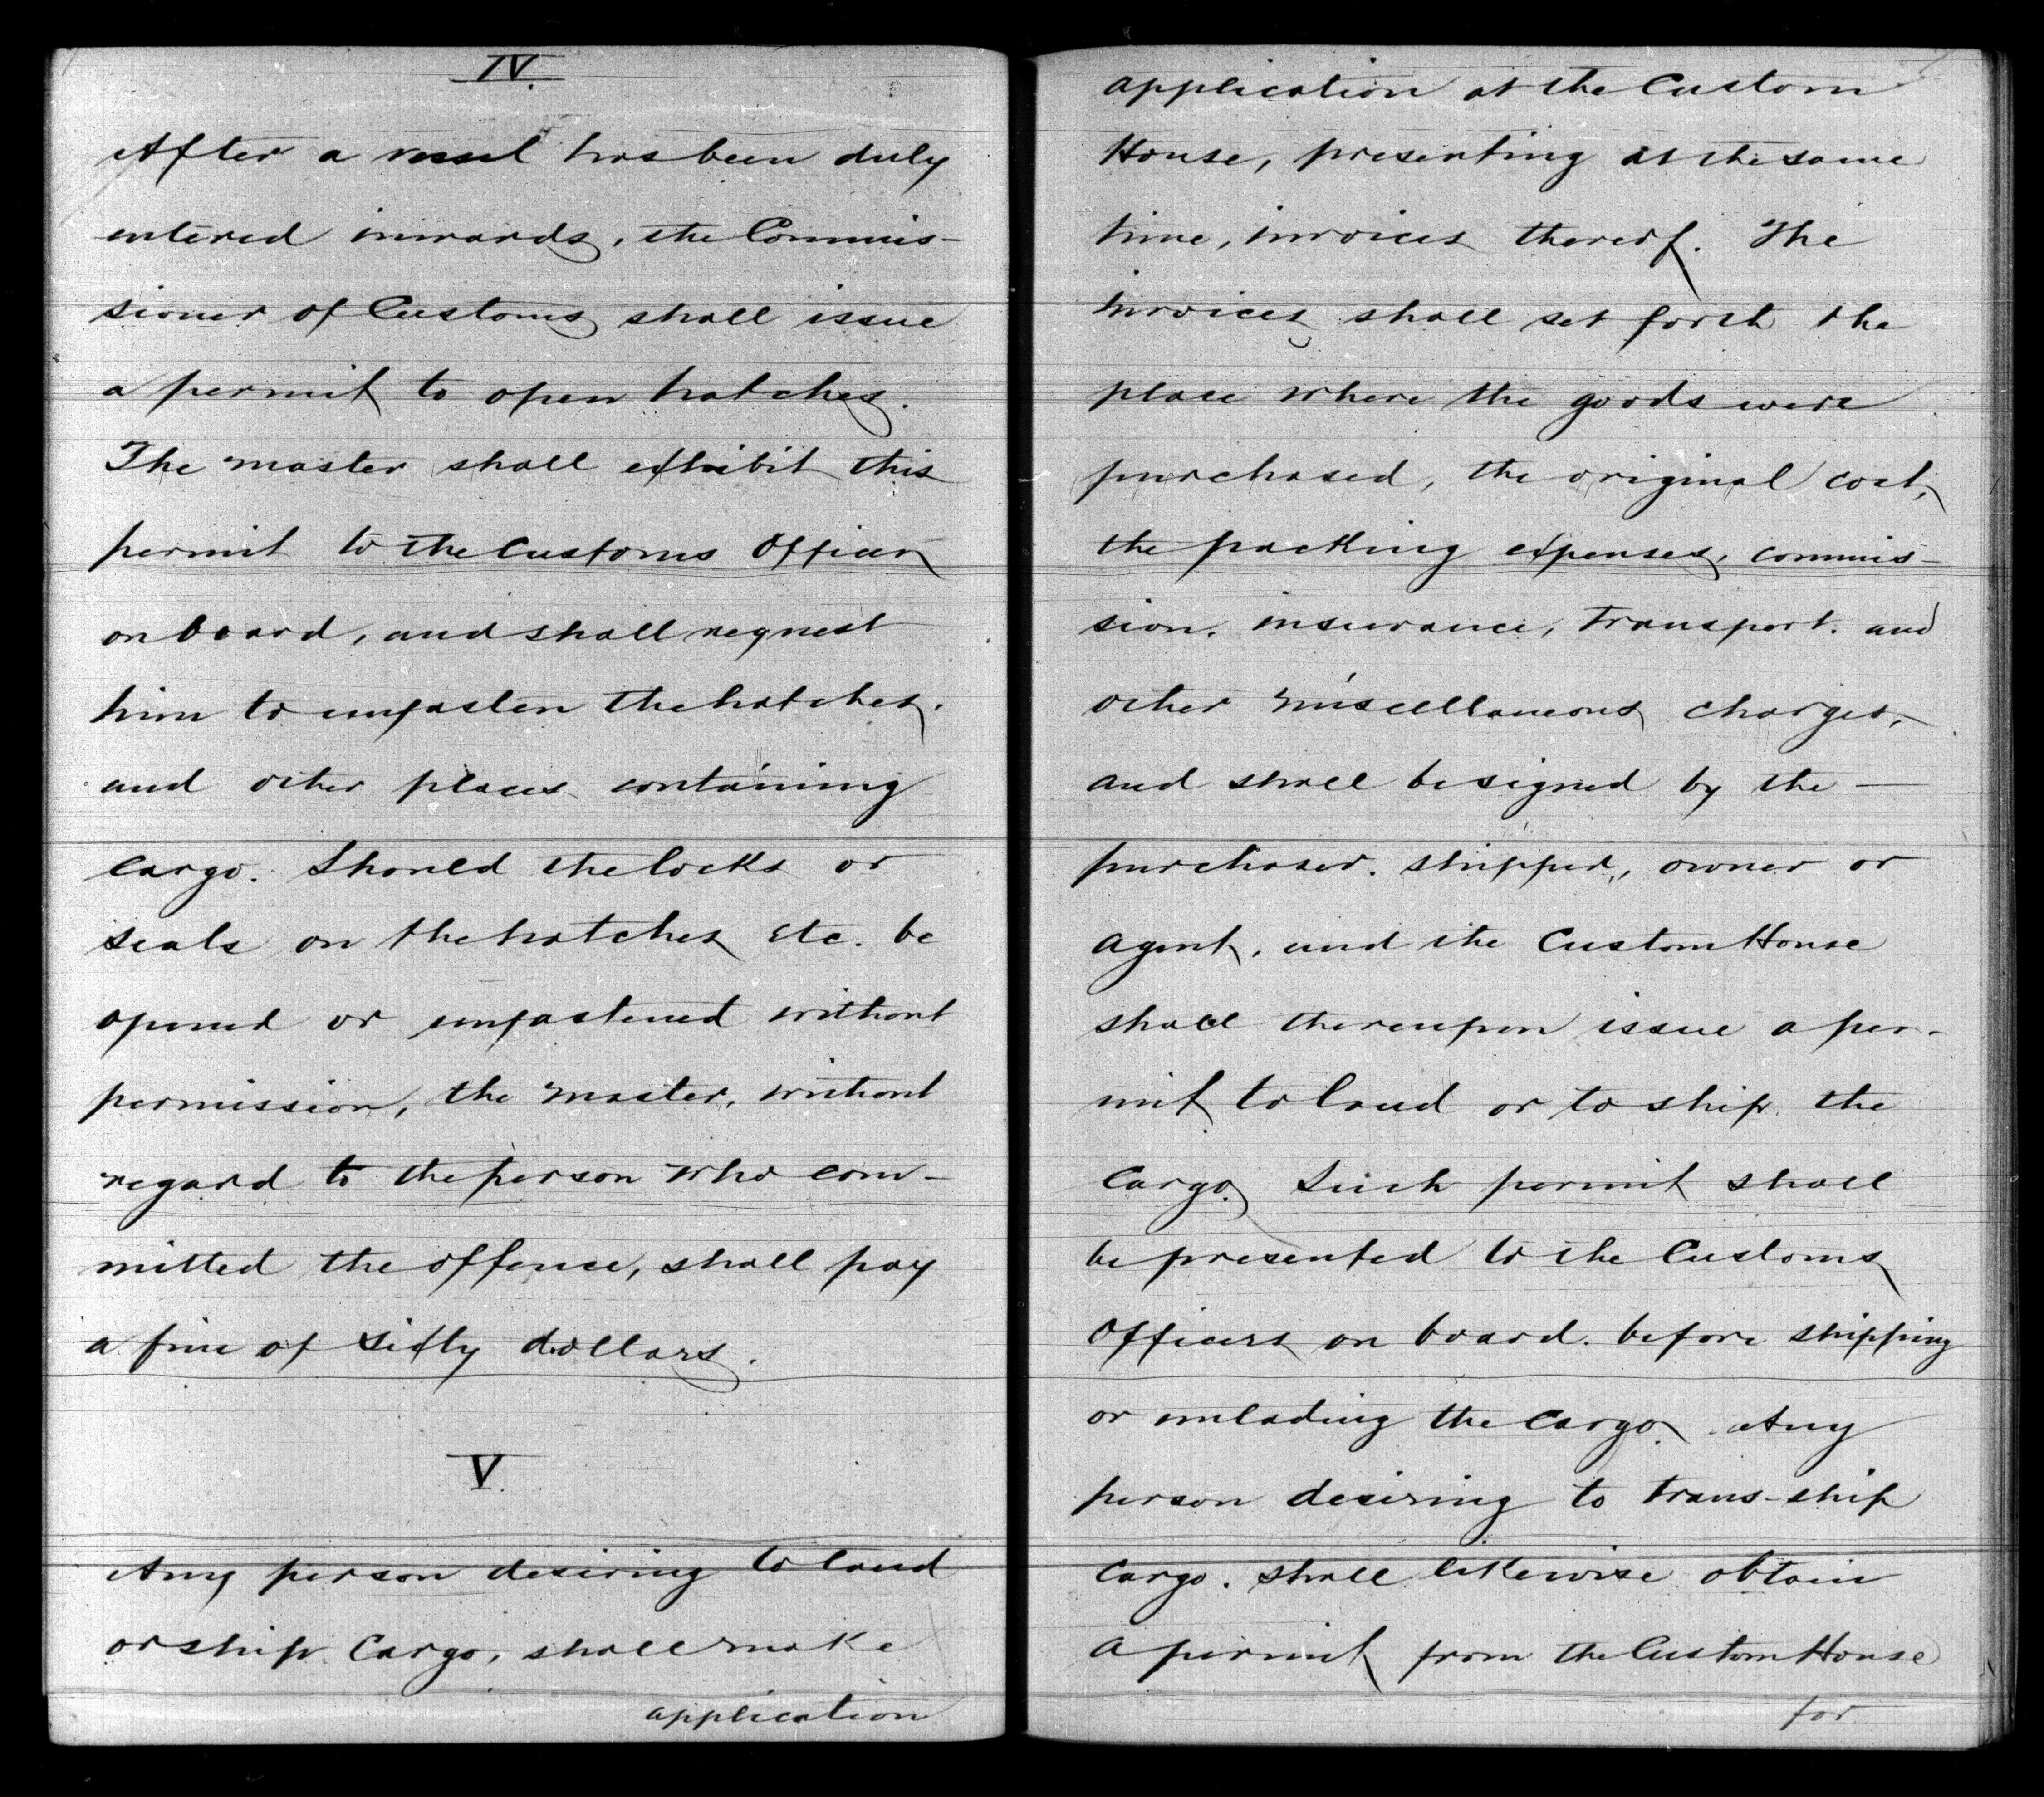 IV.
After a vessel has been duly
entered inwards, the Commis-
sioner of Customs shall issue
a permit to open hatches.
The master shall exhibit this
permit to the Customs Officer
on board, and shall request
him to unfasten the hatches.
and other places containing
cargo. Should the locks or
seals on the hatches etc. be
opened or unfastened without
permission, the master, without
regard to the person who com-
mitted the offence, shall pay
a fine of sixty dollars.
V.
Any person desiring to land
or ship Cargo, shall make
application
application at the Custom
House, presenting at the same
time, invoices thereof. The
invoices shall set forth the
place where the goods were
purchased, the original cost,
the packing expenses, commis-
sion. insurance, transport. and
other miscellaneous charges,
and shall be signed by the —
purchaser. shipper, owner or
agent. and the Custom House
shall thereupon issue a per-
mit to land or to ship the
Cargo. Such permit shall
be presented to the Customs
Officers on board. before shipping
or unlading the Cargo. Any
person desiring to trans-ship
Cargo. shall likewise obtain
a permit from the Custom House
for